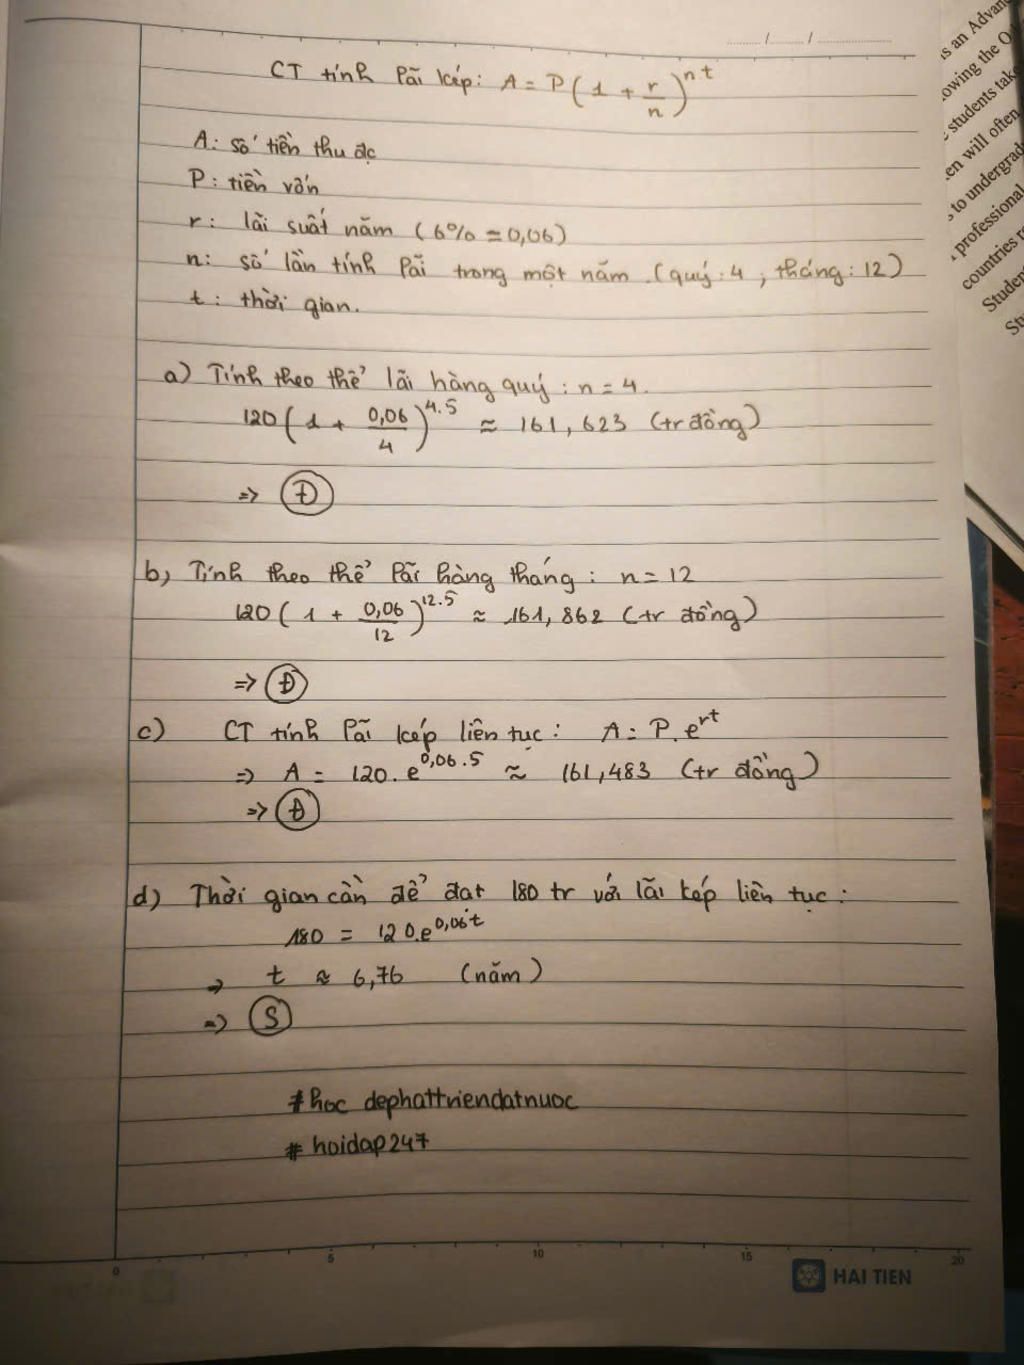 ....../....../............
CT tính lãi kép: A = P(1 + r/n)^nt
A: số tiền thu đc
P: tiền vốn
r: lãi suất năm (6% = 0,06)
n: số lần tính lãi trong một năm. (quý: 4, tháng: 12)
t: thời gian.
a) Tính theo thể lãi hàng quý: n = 4.
120(1 + 0,06/4)^4.5 ≈ 161,623 (tr đồng)
=> Đ
b) Tính theo thể lãi hàng tháng: n = 12
120(1 + 0,06/12)^12.5 ≈ 161,862 (tr đồng)
=> Đ
c) CT tính lãi kép liên tục: A = P.e^rt
=> A = 120.e^0,06.5 ≈ 161,483 (tr đồng)
=> Đ
d) Thời gian cần để đạt 180 tr với lãi kép liên tục:
180 = 120.e^0,06.t
=> t ≈ 6,76 (năm)
=> S
#hoc dephattriendatnuoc
#hoidap247
0 5 10 15 20
HAI TIEN
is an Advan
owing the O
students tak
en will often
to undergrad
professional
countries r
Studen
St